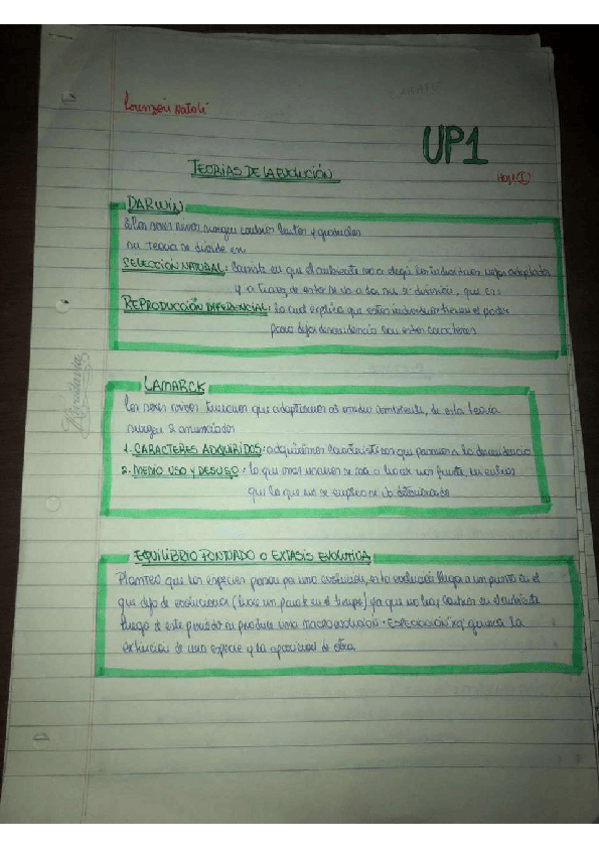 Lourdes Natali
UP1
TEORIAS DE LA EVOLUCIÓN
Hoja 1
DARWIN
Los seres vivos surgen cambios lentos y graduales
su teoria se divide en
SELECCIÓN NATURAL: Consiste en que el ambiente va a elegir los individuos mejor adaptados
y a traves de esto se da a su 2º división, que es:
REPRODUCCIÓN DIFERENCIAL: la cual explica que estos individuos tienen el poder
para dejar descendencia con estos caracteres
LAMARCK
Los seres vivos tuvieron que adaptarse al medio ambiente, de esta teoria
surgen 2 enunciados
1. CARACTERES ADQUIRIDOS: adquirimos caracteristicas que pasamos a la descendencia
2. MEDIO USO Y DESUSO: lo que mas usamos se va a hacer mas fuerte, en cambio
que lo que no se emplea se va deteriorando
EQUILIBRIO PUNTUADO O EXTASIS EVOLUTICA
Plantea que las especies pasan por una evolución, esta evolución llega a un punto en el
que deja de evolucionar (hace un parate en el tiempo) ya que no hay cambios en el ambiente
luego de este periodo se produce una macroevolución - ESPECIACIÓN xq genera la
extincion de una especie y la aparicion de otra